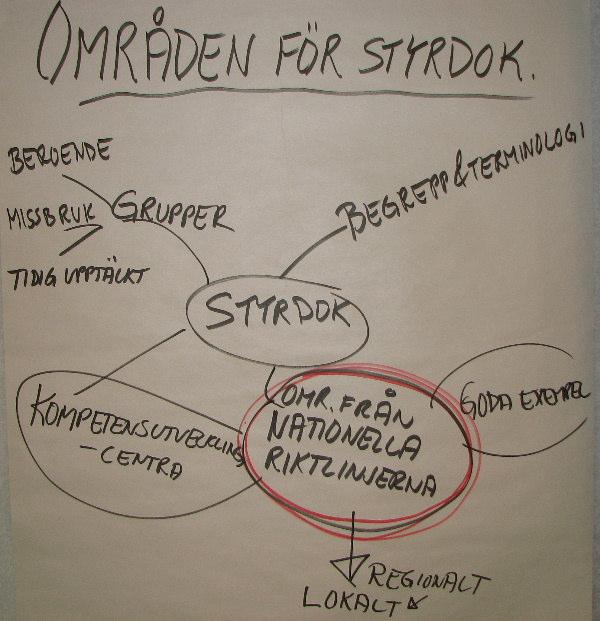 OMRÅDEN FÖR STYRDOK.
BEROENDE
MISSBRUK
TIDIG UPPTÄCKT
GRUPPER
BEGREPP & TERMINOLOGI
STYRDOK
KOMPETENSUTVECKLING
-CENTRA
OMR. FRÅN
NATIONELLA
RIKTLINJERNA
GODA EXEMPEL
REGIONALT
LOKALT